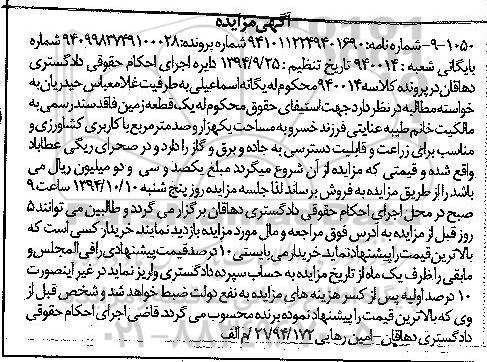 آگهی مزایده
۹-۱۰۵۰- شماره نامه: ۹۴۱۰۱۱۲۲۴۹۴۰۱۶۹۰ شماره پرونده: ۹۴۰۹۹۸۳۷۴۹۱۰۰۰۲۸ شماره
بایگانی شعبه : ۹۴۰۰۱۴ تاریخ تنظیم : ۱۳۹۴/۹/۲۵ دایره اجرای احکام حقوقی دادگستری
دهاقان در پرونده کلاسه ۹۴۰۰۱۴ محکوم له یگانه اسماعیلی به طرفیت غلامعباس حیدریان به
خواسته مطالبه در نظر دارد جهت استیفای حقوق محکوم له یک قطعه زمین فاقد سند رسمی به
مالکیت خانم طیبه عنایتی فرزند خسرو به مساحت یکهزار و صد متر مربع با کاربری کشاورزی و
مناسب برای زراعت و قابلیت دسترسی به جاده و برق و گاز را دارد و در صحرای ریگی عطاباد
واقع شده و قیمتی که مزایده از آن شروع میگردد مبلغ یکصد و سی و دو میلیون ریال می
باشد را از طریق مزایده به فروش برساند لذا جلسه مزایده روز پنج شنبه ۱۳۹۴/۱۰/۱۰ ساعت ۹
صبح در محل اجرای احکام حقوقی دادگستری دهاقان برگزار می گردد و طالبین می توانند ۵
روز قبل از مزایده به آدرس فوق مراجعه و مال مورد مزایده بازدید نمایند. خریدار کسی است که
بالاترین قیمت را پیشنهاد نماید. خریدار می بایستی ۱۰ درصد قیمت پیشنهادی را فی المجلس و
مابقی را ظرف یک ماه از تاریخ مزایده به حساب سپرده دادگستری واریز نماید در غیر اینصورت
۱۰ درصد اولیه پس از کسر هزینه های مزایده به نفع دولت ضبط خواهد شد و شخص قبل از
وی که بالاترین قیمت را پیشنهاد نموده برنده محسوب می گردد. قاضی اجرای احکام حقوقی
دادگستری دهاقان_ امین رهایی ۲۷/۹۴/۱۷۲ /م الف